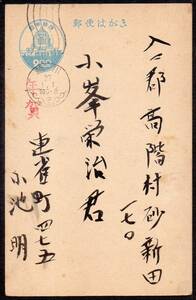 郵便はがき
入間郡高階村砂新田
一七〇
小峯栄治君
連雀町四七五
小池明
年賀